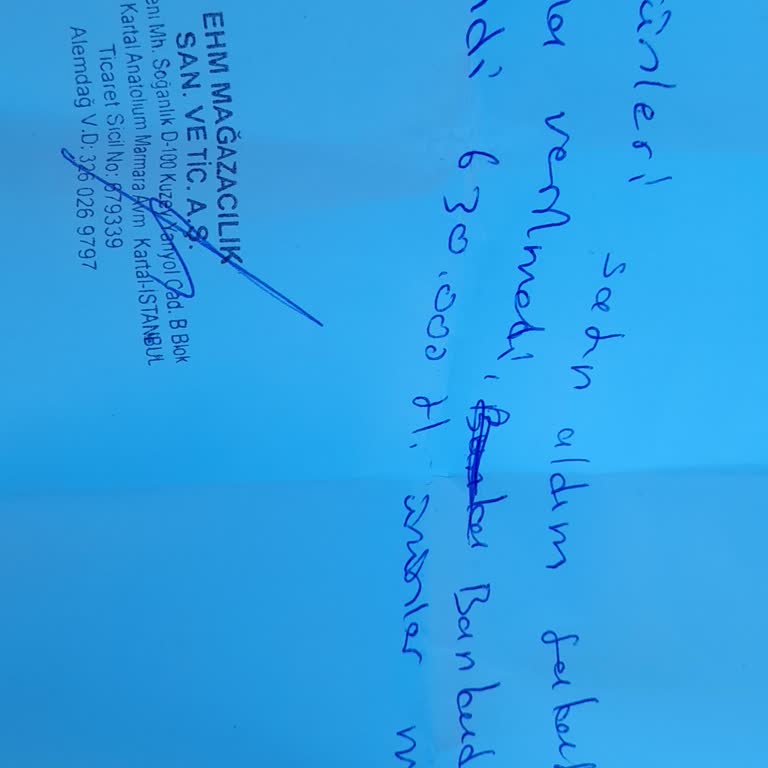 ünleri satın aldım
verilmedi, Bankad
ndi 630.000 tl. ürünler m
EHM MAĞAZACILIK
SAN. VE TİC. A.Ş.
eni Mh. Soğanlık D-100 Kuzey Yanyol Cad. B Blok
Kartal Anatolium Marmara Avm Kartal-İSTANBUL
Ticaret Sicil No: 679339
Alemdağ V.D: 326 026 9797